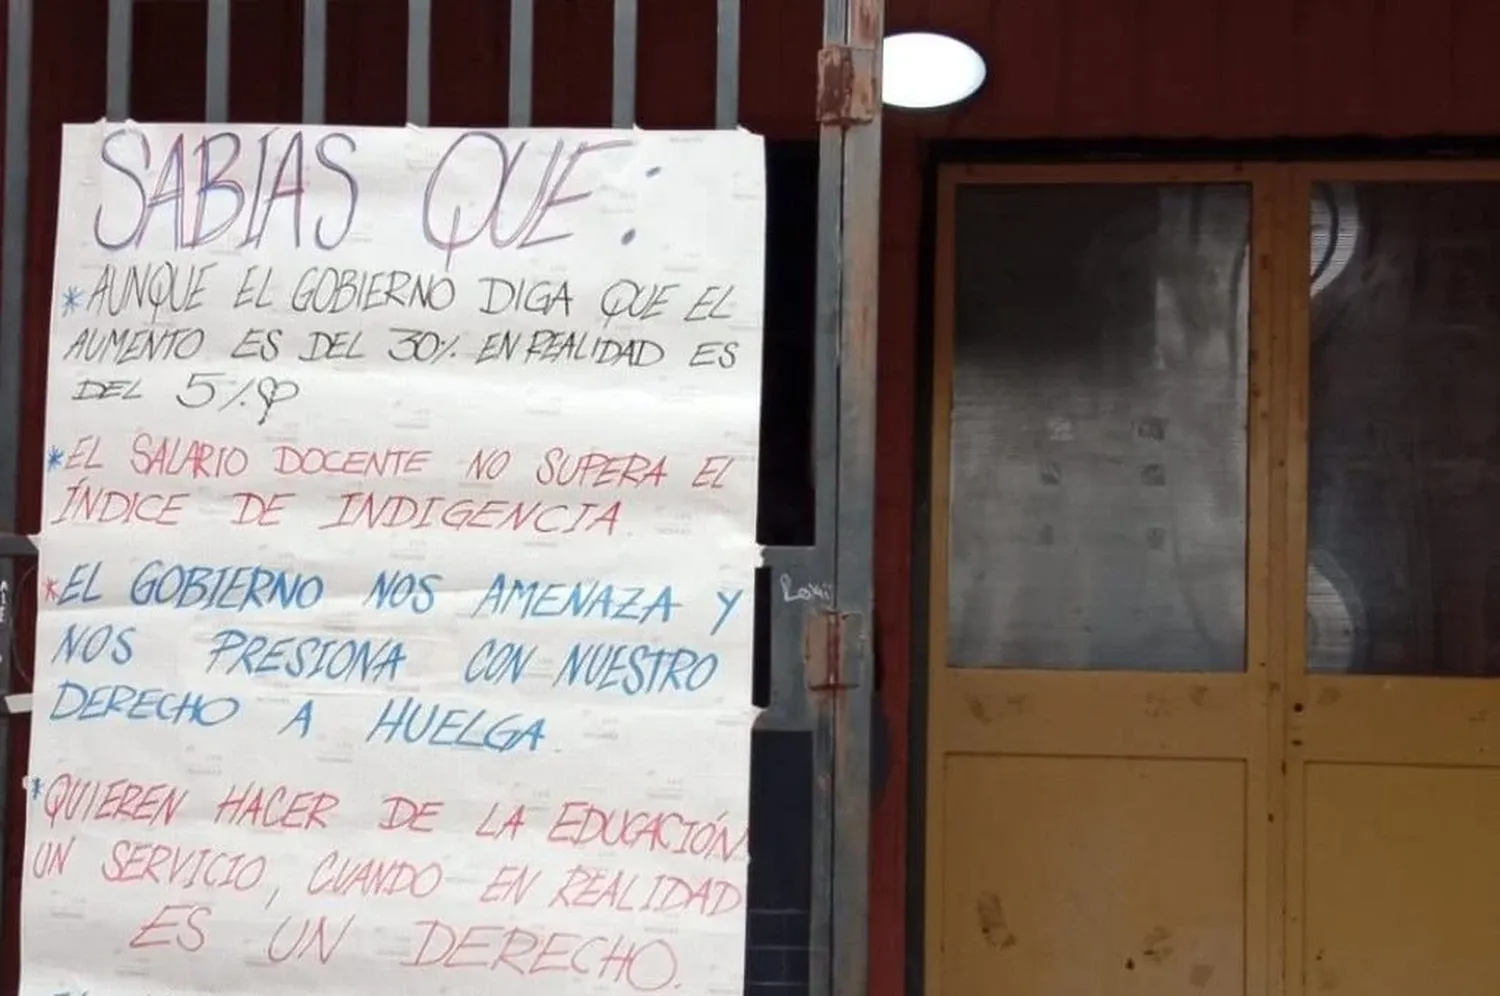 SABIAS QUE:
* AUNQUE EL GOBIERNO DIGA QUE EL
AUMENTO ES DEL 30% EN REALIDAD ES
DEL 5%
* EL SALARIO DOCENTE NO SUPERA EL
ÍNDICE DE INDIGENCIA
* EL GOBIERNO NOS AMENAZA Y
NOS PRESIONA CON NUESTRO
DERECHO A HUELGA
* QUIEREN HACER DE LA EDUCACIÓN
UN SERVICIO, CUANDO EN REALIDAD
ES UN DERECHO.